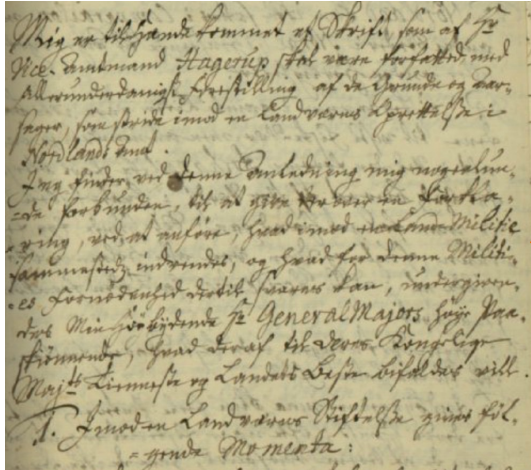 Mig er til Hænde kommet et Skrift, som af Hr
Vice-Amtmand Hagerup skal være forfattet med
Allerunderdanigst Forestilling af de Grunde og Aar-
sager, som stride imod en Landværns Oprettelse i
Nordlands Amt.
Jeg finder ved denne Anledning mig nogenlun-
-de forbunden, til at give herover en Forkla-
-ring, ved at anføre, hvad imod en Land-Militie
sammesteds indvendes, og hvad for denne Militi-
-es Fornødenhed dertil svares kan, undergiven-
des Min Høybydende Hr GeneralMajors høye Paa-
skiønnende, hvad deraf til Deres Kongelige
Majts Tienneste og Landets Beste bifaldes vill.
1. Imod en Landværns Stiftelse gives føl-
-gende Momenta: